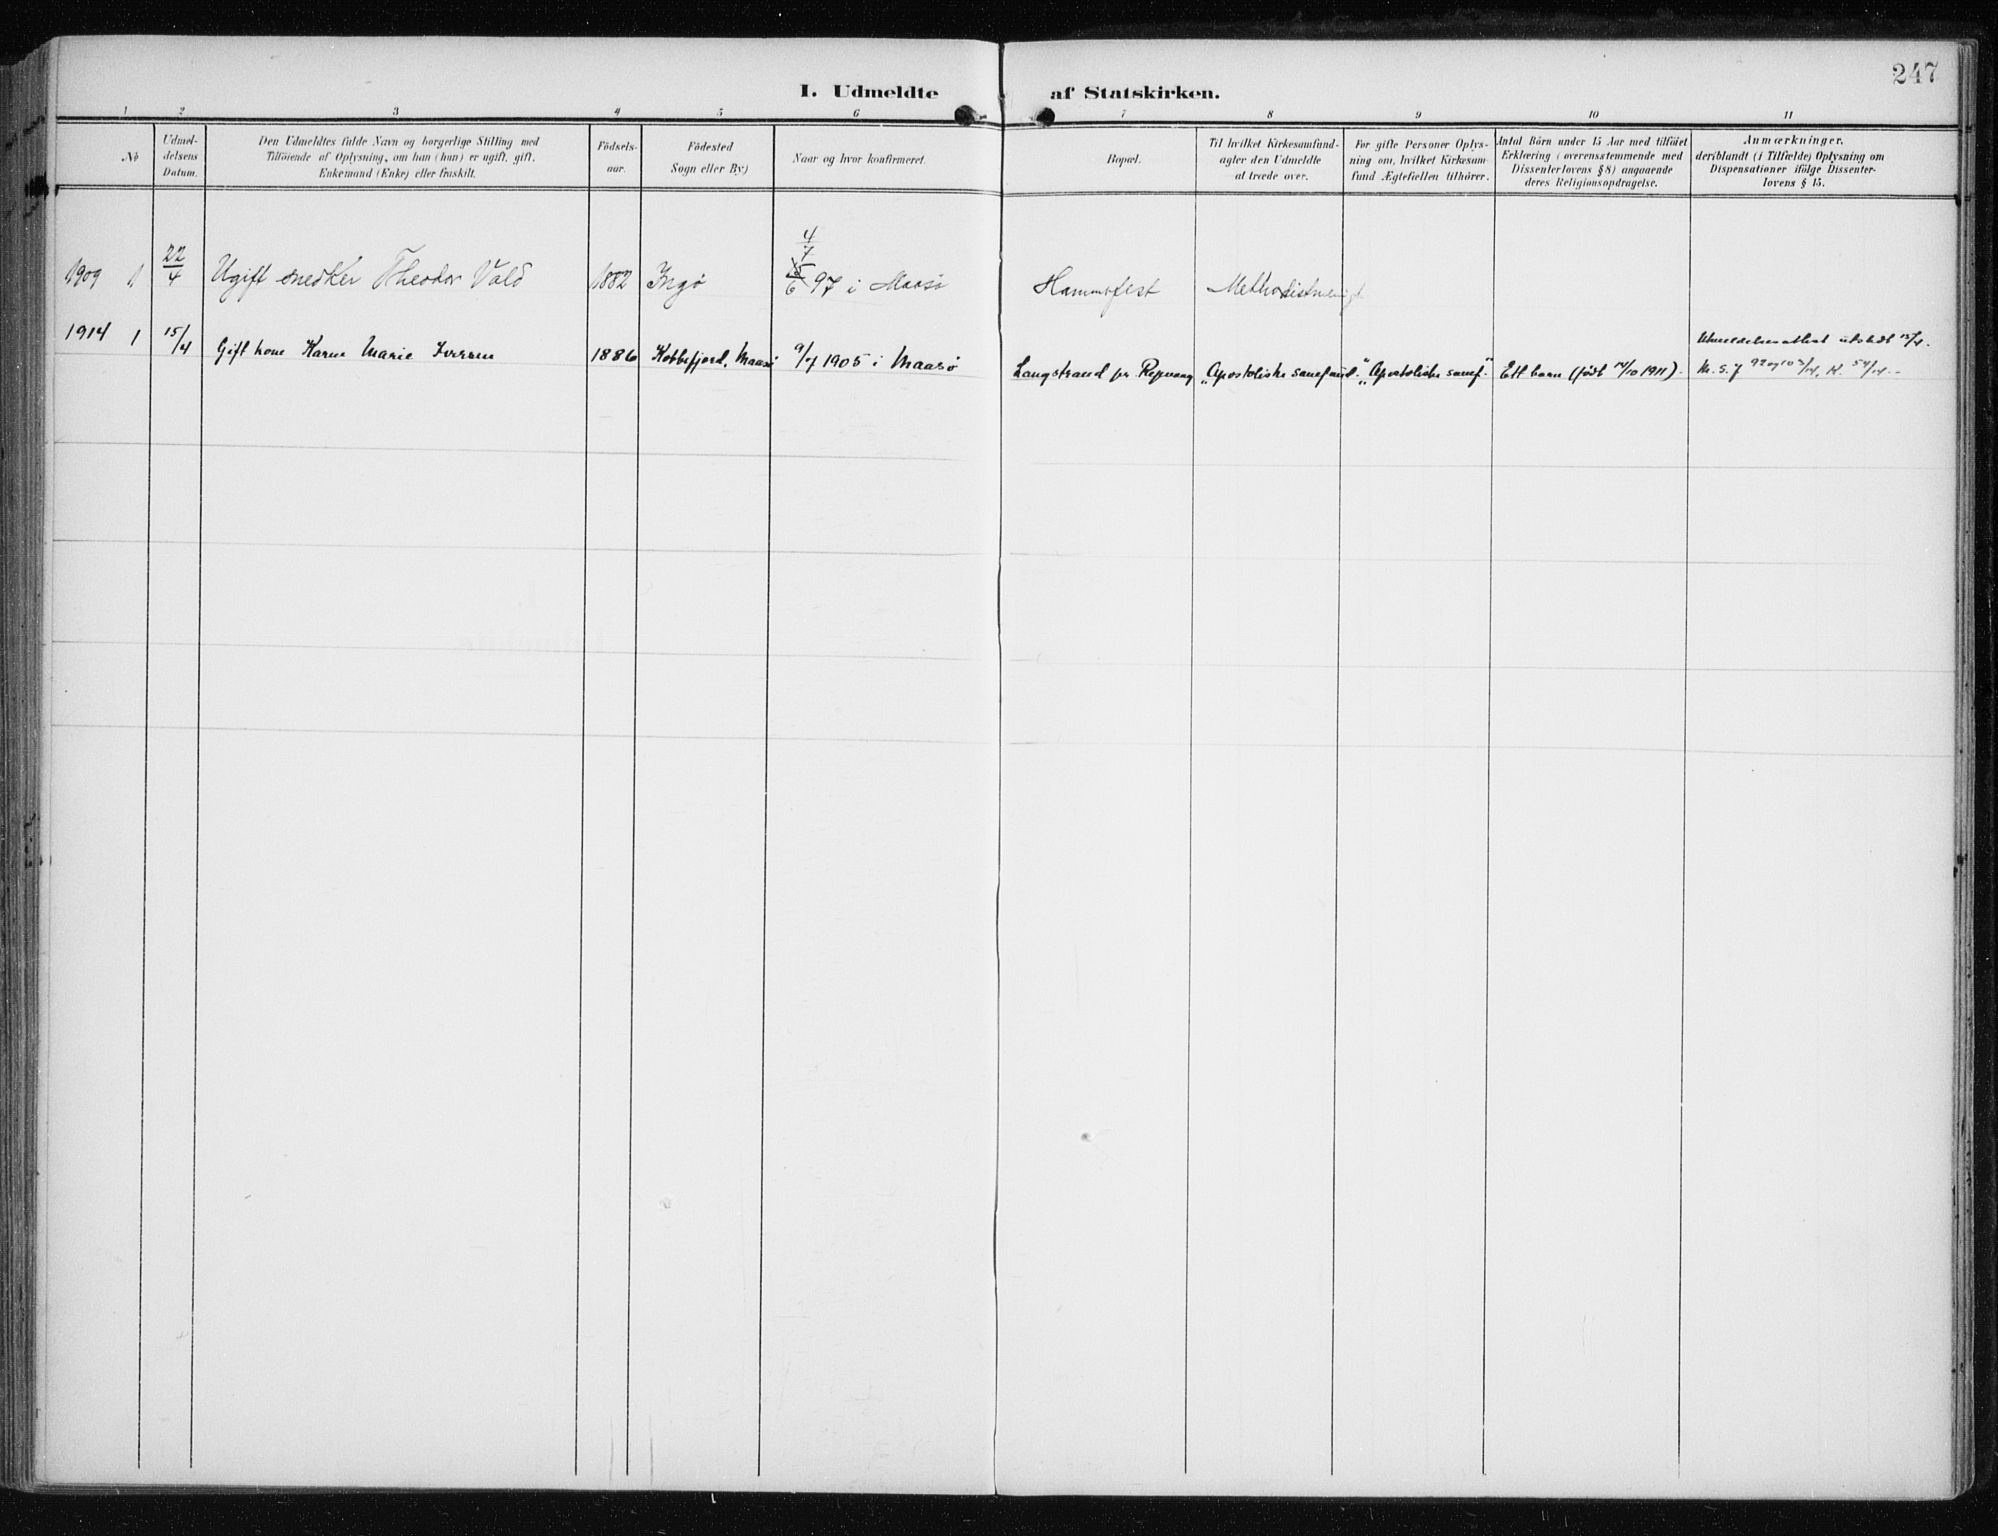 247
I. Udmeldte af Statskirken.
1 2 3 4 5 6 7 8 9 10 11
No
Udmel-
delsens
Datum.
Den Udmeldtes fulde Navn og borgerlige Stilling med
Tilföiende af Oplysning, om han (hun) er ugift, gift,
Enkemand (Enke) eller fraskilt.
Födsels-
aar.
Födested
Sogn eller By)
Naar og hvor konfirmeret.
Bopæl.
Til hvilket Kirkesamfund-
agter den Udmeldte
at træde over.
For gifte Personer Oplys-
ning om, hvilket Kirkesam-
fund Ægtefællen tilhörer.
Antal Börn under 15 Aar med tilföiet
Erklæring (overensstemmende med
Dissenterlovens § 8) angaaende
deres Religionsopdragelse.
Anmærkninger,
deriblandt (i Tilfælde) Oplysning om
Dispensationer ifölge Dissenter-
lovens § 15.
1909 1 22/4 Ugift snedker Theodor Vold 1882 Ingø 4/7 97 i Maasø Hammerfest
1914 1 15/4 Gift kone Karen Marie Iversen 1886 Kobbefjord, Maasø 9/7 1905 i Maasø Langstrand pr. Repvaag "Apostoliske samfund." "Apostoliske samf." Ett barn (født 14/10 1911). Utmeldelsesattest utstedt 15/4.